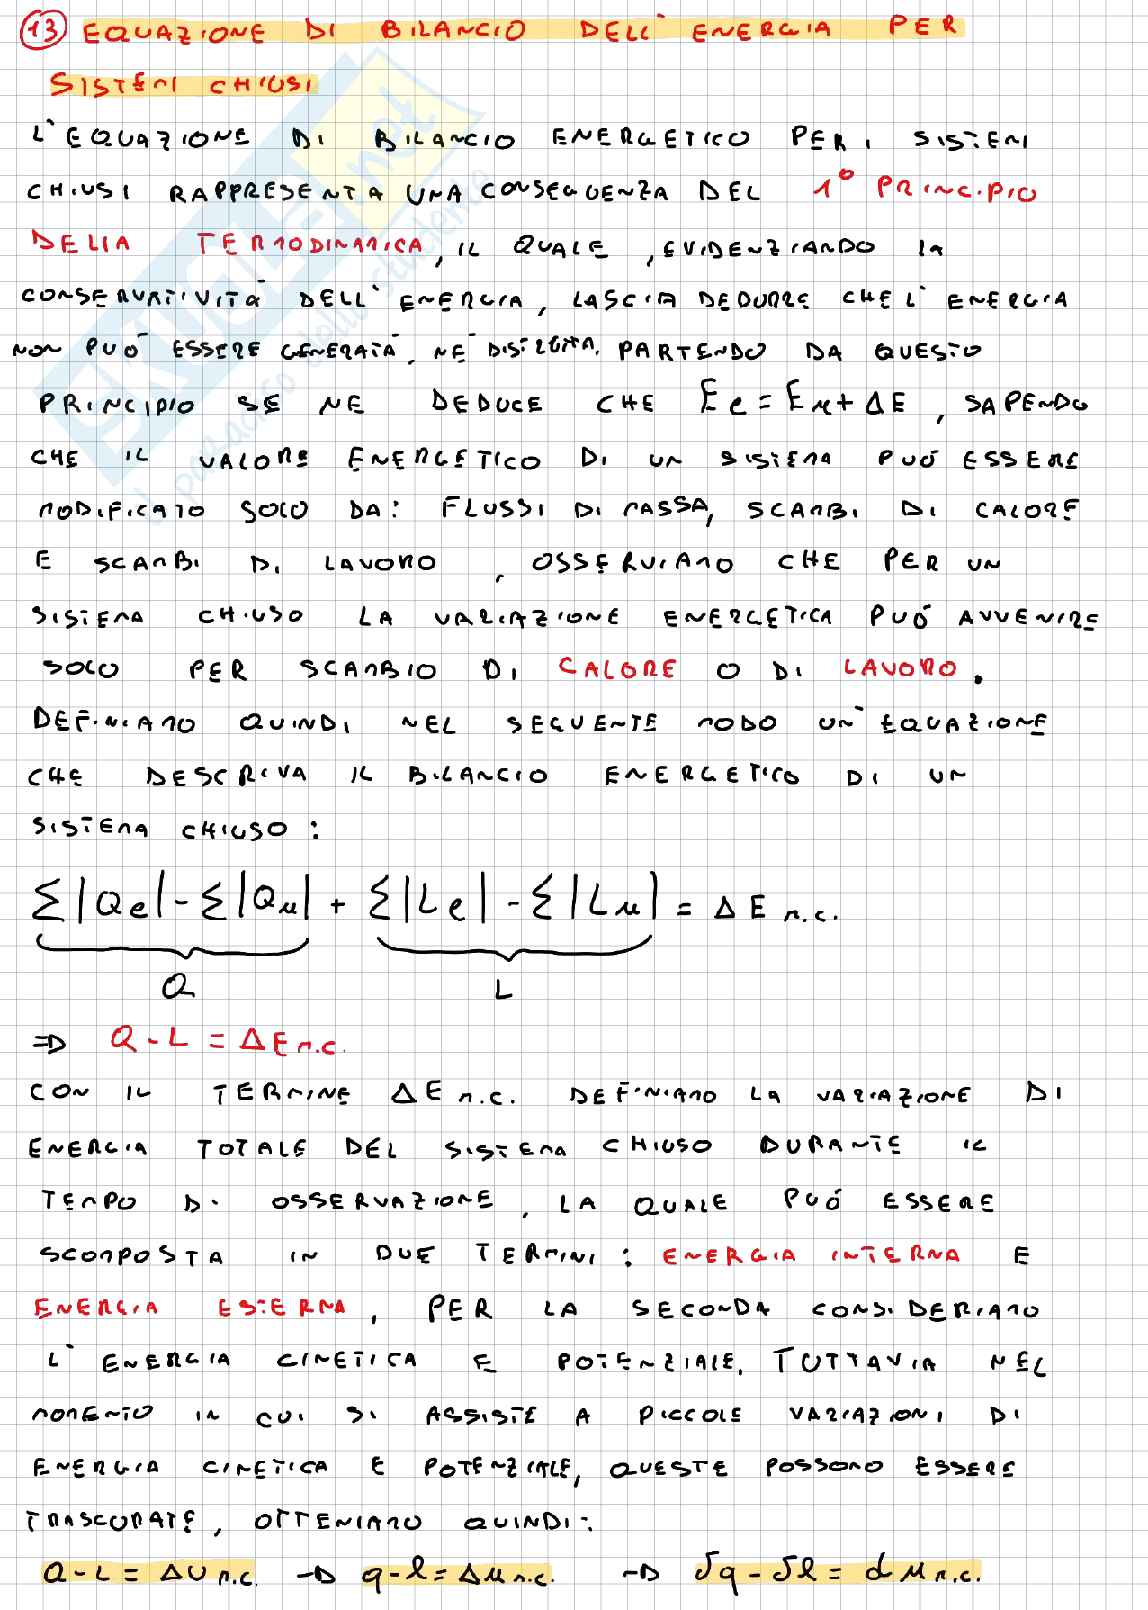 13 EQUAZIONE DI BILANCIO DELL'ENERGIA PER
SISTEMI CHIUSI
L'EQUAZIONE DI BILANCIO ENERGETICO PER I SISTEMI
CHIUSI RAPPRESENTA UNA CONSEGUENZA DEL 1° PRINCIPIO
DELLA TERMODINAMICA, IL QUALE, EVIDENZIANDO LA
CONSERVATIVITÀ DELL'ENERGIA, LASCIA DEDURRE CHE L'ENERGIA
NON PUÒ ESSERE GENERATA, NÉ DISTRUTTA. PARTENDO DA QUESTO
PRINCIPIO SE NE DEDUCE CHE Ee = Eu + ΔE, SAPENDO
CHE IL VALORE ENERGETICO DI UN SISTEMA PUÒ ESSERE
MODIFICATO SOLO DA: FLUSSI DI MASSA, SCAMBI DI CALORE
E SCAMBI DI LAVORO, OSSERVIAMO CHE PER UN
SISTEMA CHIUSO LA VARIAZIONE ENERGETICA PUÓ AVVENIRE
SOLO PER SCAMBIO DI CALORE O DI LAVORO.
DEFINIAMO QUINDI NEL SEGUENTE MODO UN'EQUAZIONE
CHE DESCRIVA IL BILANCIO ENERGETICO DI UN
SISTEMA CHIUSO:
Σ|Qe| - Σ|Qu| + Σ|Le| - Σ|Lu| = ΔE m.c.
Q L
⇒ Q - L = ΔE m.c.
CON IL TERMINE ΔE m.c. DEFINIAMO LA VARIAZIONE DI
ENERGIA TOTALE DEL SISTEMA CHIUSO DURANTE IL
TEMPO DI OSSERVAZIONE, LA QUALE PUÓ ESSERE
SCOMPOSTA IN DUE TERMINI: ENERGIA INTERNA E
ENERGIA ESTERNA, PER LA SECONDA CONSIDERIAMO
L'ENERGIA CINETICA E POTENZIALE. TUTTAVIA NEL
MOMENTO IN CUI SI ASSISTE A PICCOLE VARIAZIONI DI
ENERGIA CINETICA E POTENZIALE, QUESTE POSSONO ESSERE
TRASCURATE, OTTENIAMO QUINDI:
Q - L = ΔU m.c. → q - l = Δu m.c. → δq - δl = du m.c.
SKUOLA.net
il paradiso dello studente